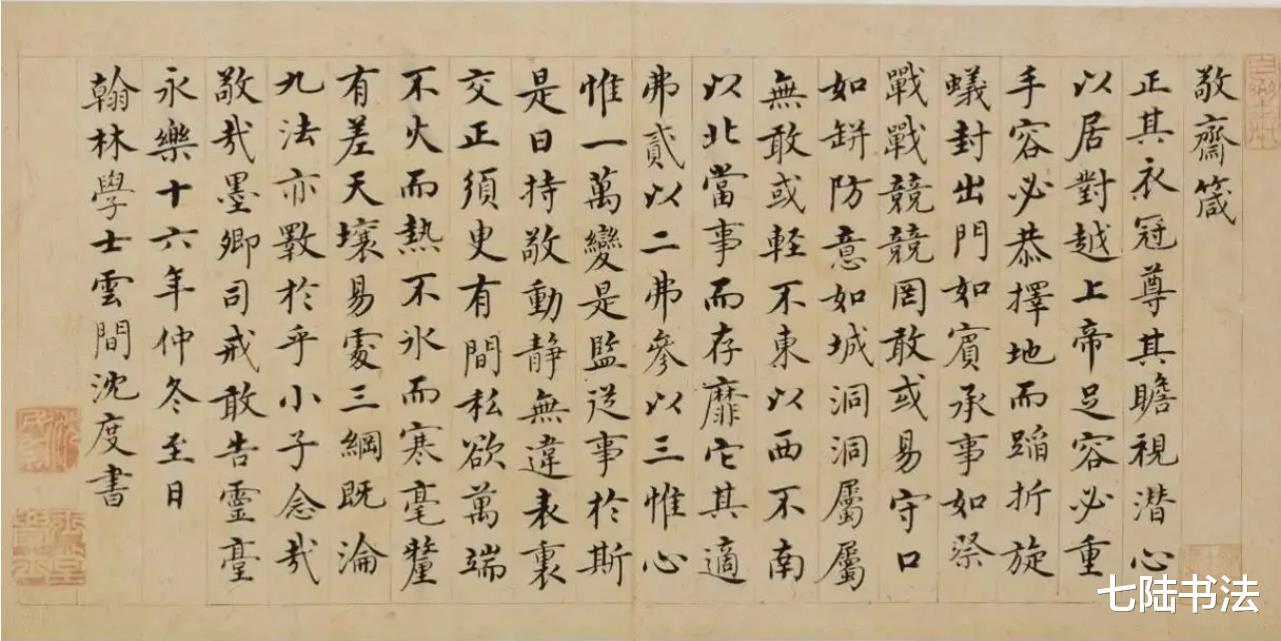 敬齋箴
正其衣冠尊其瞻視潛心
以居對越上帝足容必重
手容必恭擇地而蹈折旋
蟻封出門如賓承事如祭
戰戰兢兢罔敢或易守口
如缾防意如城洞洞屬屬
無敢或輕不東以西不南
以北當事而存靡它其適
弗貳以二弗參以三惟心
惟一萬變是監從事於斯
是日持敬動靜無違表裏
交正須臾有間私欲萬端
不火而熱不氷而寒毫釐
有差天壤易處三綱既淪
九法亦斁於乎小子念哉
敬哉墨卿司戒敢告靈臺
永樂十六年仲冬至日
翰林學士雲間沈度書
七陆书法